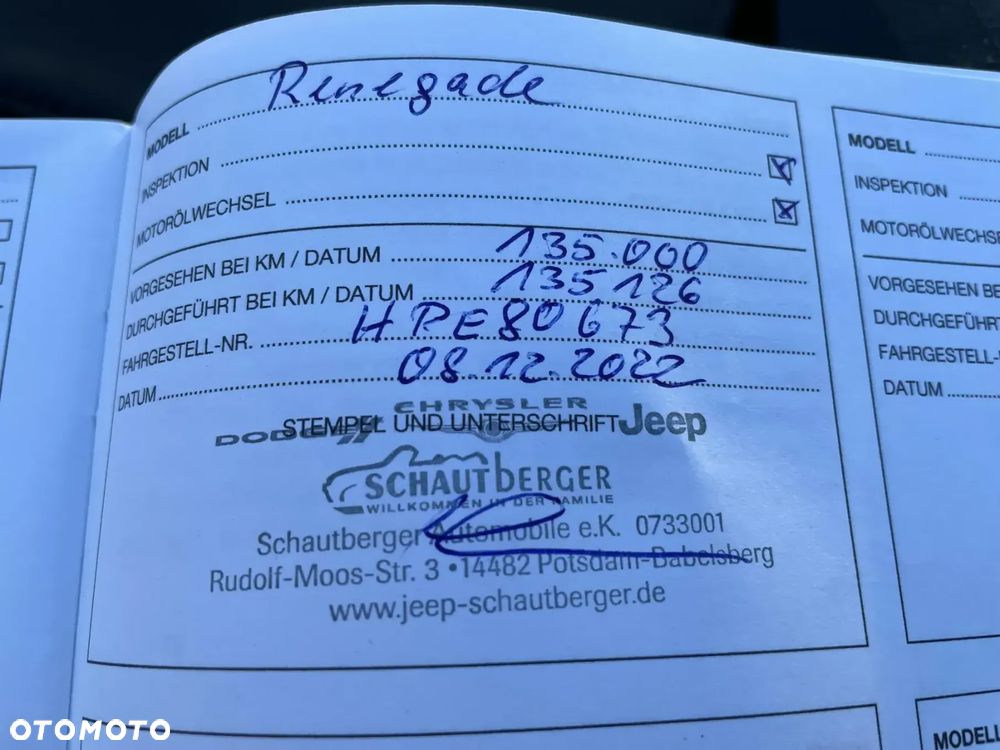 MODELL Renegade
INSPEKTION
MOTORÖLWECHSEL
VORGESEHEN BEI KM / DATUM 135.000
DURCHGEFÜHRT BEI KM / DATUM 135126
FAHRGESTELL-NR. HPE80673
DATUM 08.12.2022
CHRYSLER
DODGE STEMPEL UND UNTERSCHRIFT Jeep
SCHAUTBERGER
WILLKOMMEN IN DER FAMILIE
Schautberger Automobile e.K. 0733001
Rudolf-Moos-Str. 3 • 14482 Potsdam-Babelsberg
www.jeep-schautberger.de
MODELL
INSPEKTION
MOTORÖLWECHSE
VORGESEHEN BE
DURCHGEFÜHRT
FAHRGESTELL-
DATUM
MODELL
OTOMOTO